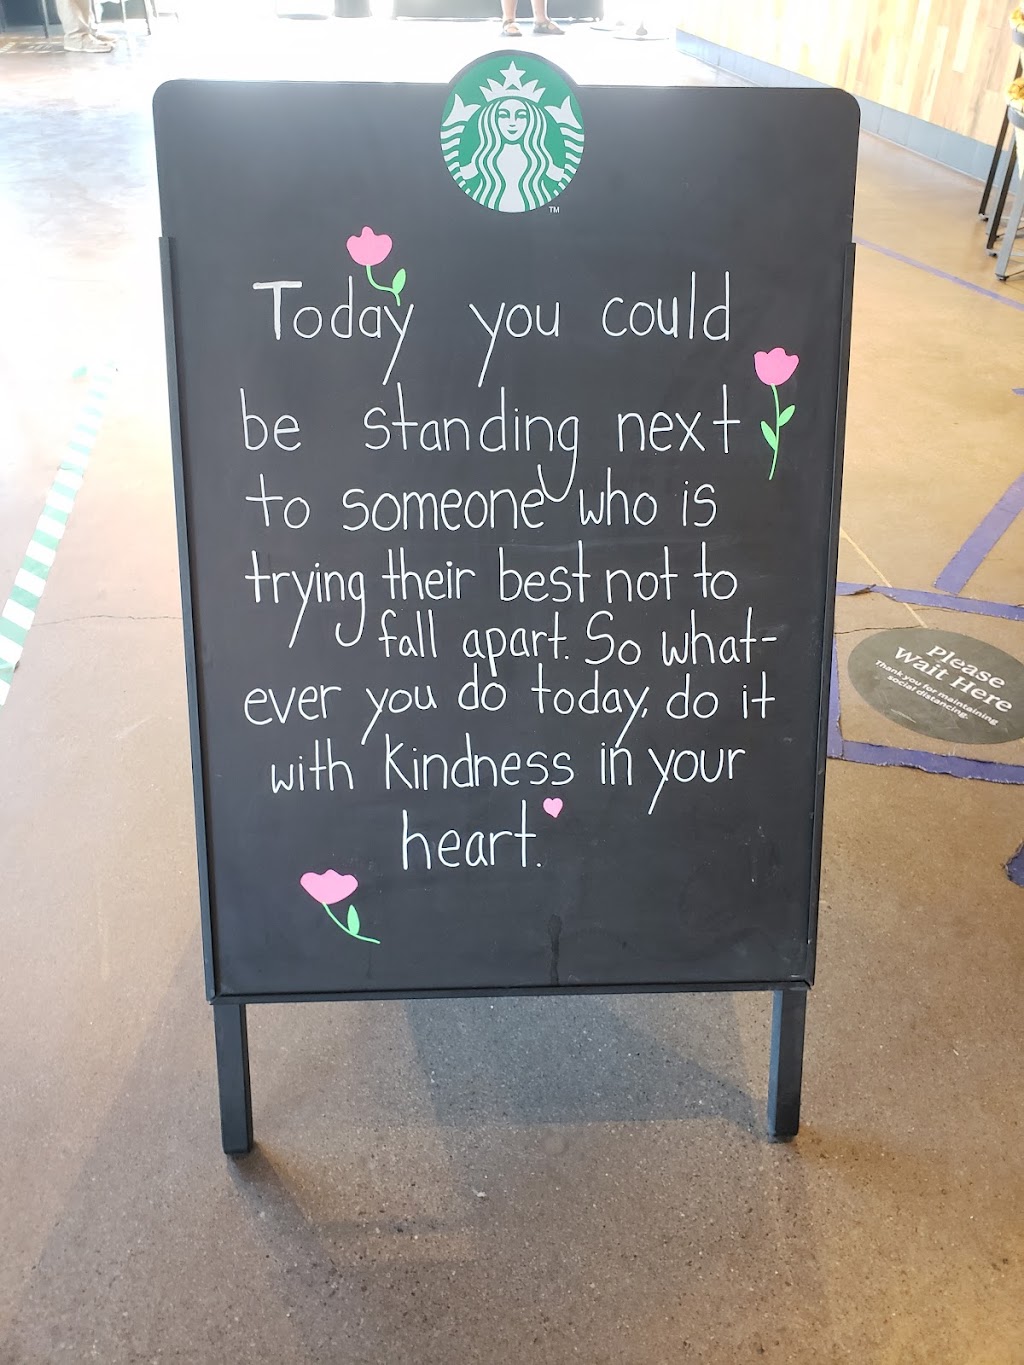 TM
Today you could
be standing next
to someone who is
trying their best not to
fall apart. So what-
ever you do today, do it
with kindness in your
heart.
Please
Wait Here
Thank you for maintaining
social distancing.